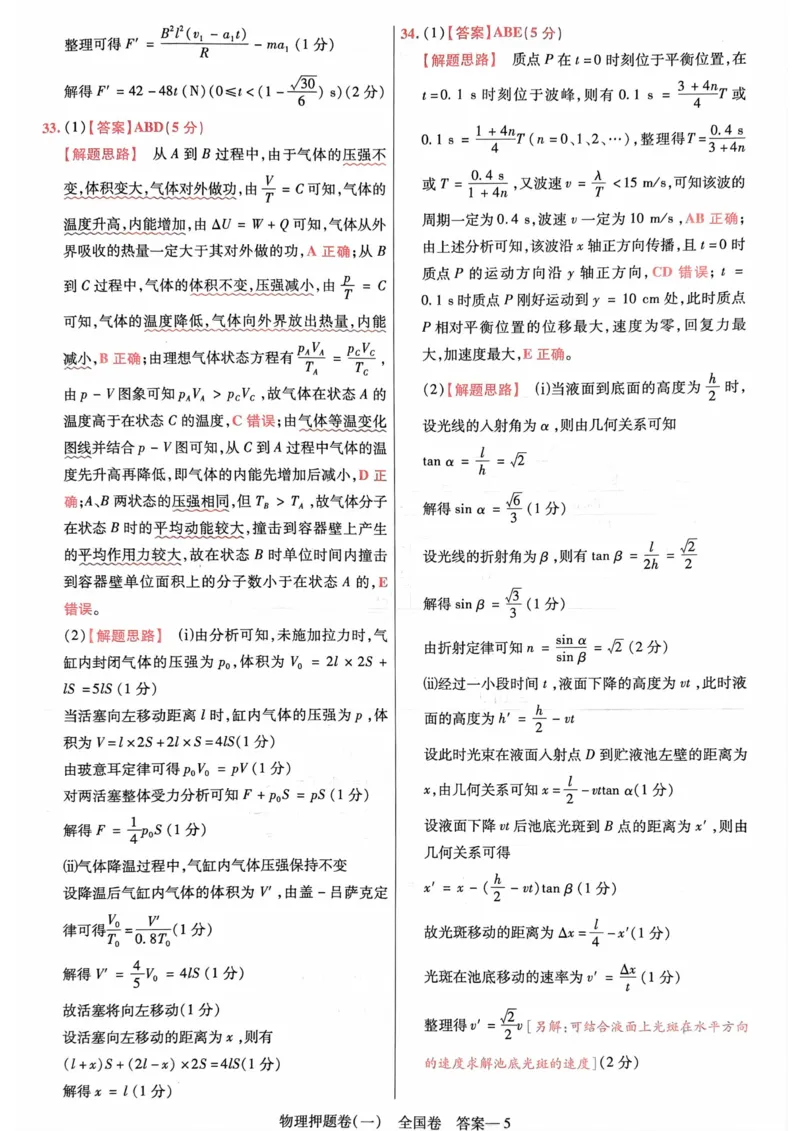 整理可得 F′ = B²l²(v₁ − a₁t)/R − ma₁ (1 分)
解得 F′ = 42 −48t (N)(0⩽t<(1 − √30/6) s)(2 分)
33.(1)【答案】ABD(5 分)
【解题思路】 从 A 到 B 过程中,由于气体的压强不
变,体积变大,气体对外做功,由 V/T = C 可知,气体的
温度升高,内能增加,由 ΔU = W + Q 可知,气体从外
界吸收的热量一定大于其对外做的功,A 正确;从 B
到 C 过程中,气体的体积不变,压强减小,由 p/T = C
可知,气体的温度降低,气体向外界放出热量,内能
减小,B 正确;由理想气体状态方程有 p_AV_A/T_A = p_CV_C/T_C ,
由 p − V 图象可知 p_AV_A > p_CV_C ,故气体在状态 A 的
温度高于在状态 C 的温度,C 错误;由气体等温变化
图线并结合 p − V 图可知,从 C 到 A 过程中气体的温
度先升高再降低,即气体的内能先增加后减小,D 正
确;A、B 两状态的压强相同,但 T_B > T_A ,故气体分子
在状态 B 时的平均动能较大,撞击到容器壁上产生
的平均作用力较大,故在状态 B 时单位时间内撞击
到容器壁单位面积上的分子数小于在状态 A 的,E
错误。
(2)【解题思路】 (ⅰ)由分析可知,未施加拉力时,气
缸内封闭气体的压强为 p₀,体积为 V₀ = 2l × 2S +
lS =5lS (1 分)
当活塞向左移动距离 l 时,缸内气体的压强为 p ,体
积为 V=l×2S+2l×S=4lS(1 分)
由玻意耳定律可得 p₀V₀ = pV (1 分)
对两活塞整体受力分析可知 F + p₀S = pS (1 分)
解得 F = 1/4 p₀S (1 分)
(ⅱ)气体降温过程中,气缸内气体压强保持不变
设降温后气缸内气体的体积为 V′ ,由盖 − 吕萨克定
律可得 V₀/T₀ = V′/0.8T₀ (1 分)
解得 V′ = 4/5 V₀ = 4lS (1 分)
故活塞将向左移动(1 分)
设活塞向左移动的距离为 x ,则有
(l+x)S+(2l−x) ×2S=4lS(1 分)
解得 x = l (1 分)
34.(1)【答案】ABE(5 分)
【解题思路】 质点 P 在 t=0 时刻位于平衡位置,在
t=0.1 s 时刻位于波峰,则有 0.1 s = (3 + 4n)/4 T 或
0.1 s = (1 + 4n)/4 T (n =0、1、2、…),整理得T= 0.4 s/(3 +4n)
或 T = 0.4 s/(1 + 4n) ,又波速 v = λ/T <15 m/s,可知该波的
周期一定为 0.4 s,波速 v 一定为 10 m/s ,AB 正确;
由上述分析可知,该波沿 x 轴正方向传播,且 t=0 时
质点 P 的运动方向沿 y 轴正方向,CD 错误; t =
0.1 s时质点 P 刚好运动到 y = 10 cm 处,此时质点
P 相对平衡位置的位移最大,速度为零,回复力最
大,加速度最大,E 正确。
(2)【解题思路】 (ⅰ)当液面到底面的高度为 h/2 时,
设光线的入射角为 α ,则由几何关系可知
tan α = l/h = √2
解得 sin α = √6/3 (1 分)
设光线的折射角为 β ,则有 tan β = l/2h = √2/2
解得 sin β = √3/3 (1 分)
由折射定律可知 n = sin α/sin β = √2 (2 分)
(ⅱ)经过一小段时间 t ,液面下降的高度为 vt ,此时液
面的高度为 h′ = h/2 − vt
设此时光束在液面入射点 D 到贮液池左壁的距离为
x,由几何关系可知 x= l/2 −vttan α(1 分)
设液面下降 vt 后池底光斑到 B 点的距离为 x′ ,则由
几何关系可得
x′ = x − (h/2 − vt)tan β (1 分)
故光斑移动的距离为 Δx= l/4 −x′(1 分)
光斑在池底移动的速率为 v′ = Δx/t (1 分)
整理得 v′ = √2/2 v [另解:可结合液面上光斑在水平方向
的速度求解池底光斑的速度](2 分)
物理押题卷(一) 全国卷 答案—5